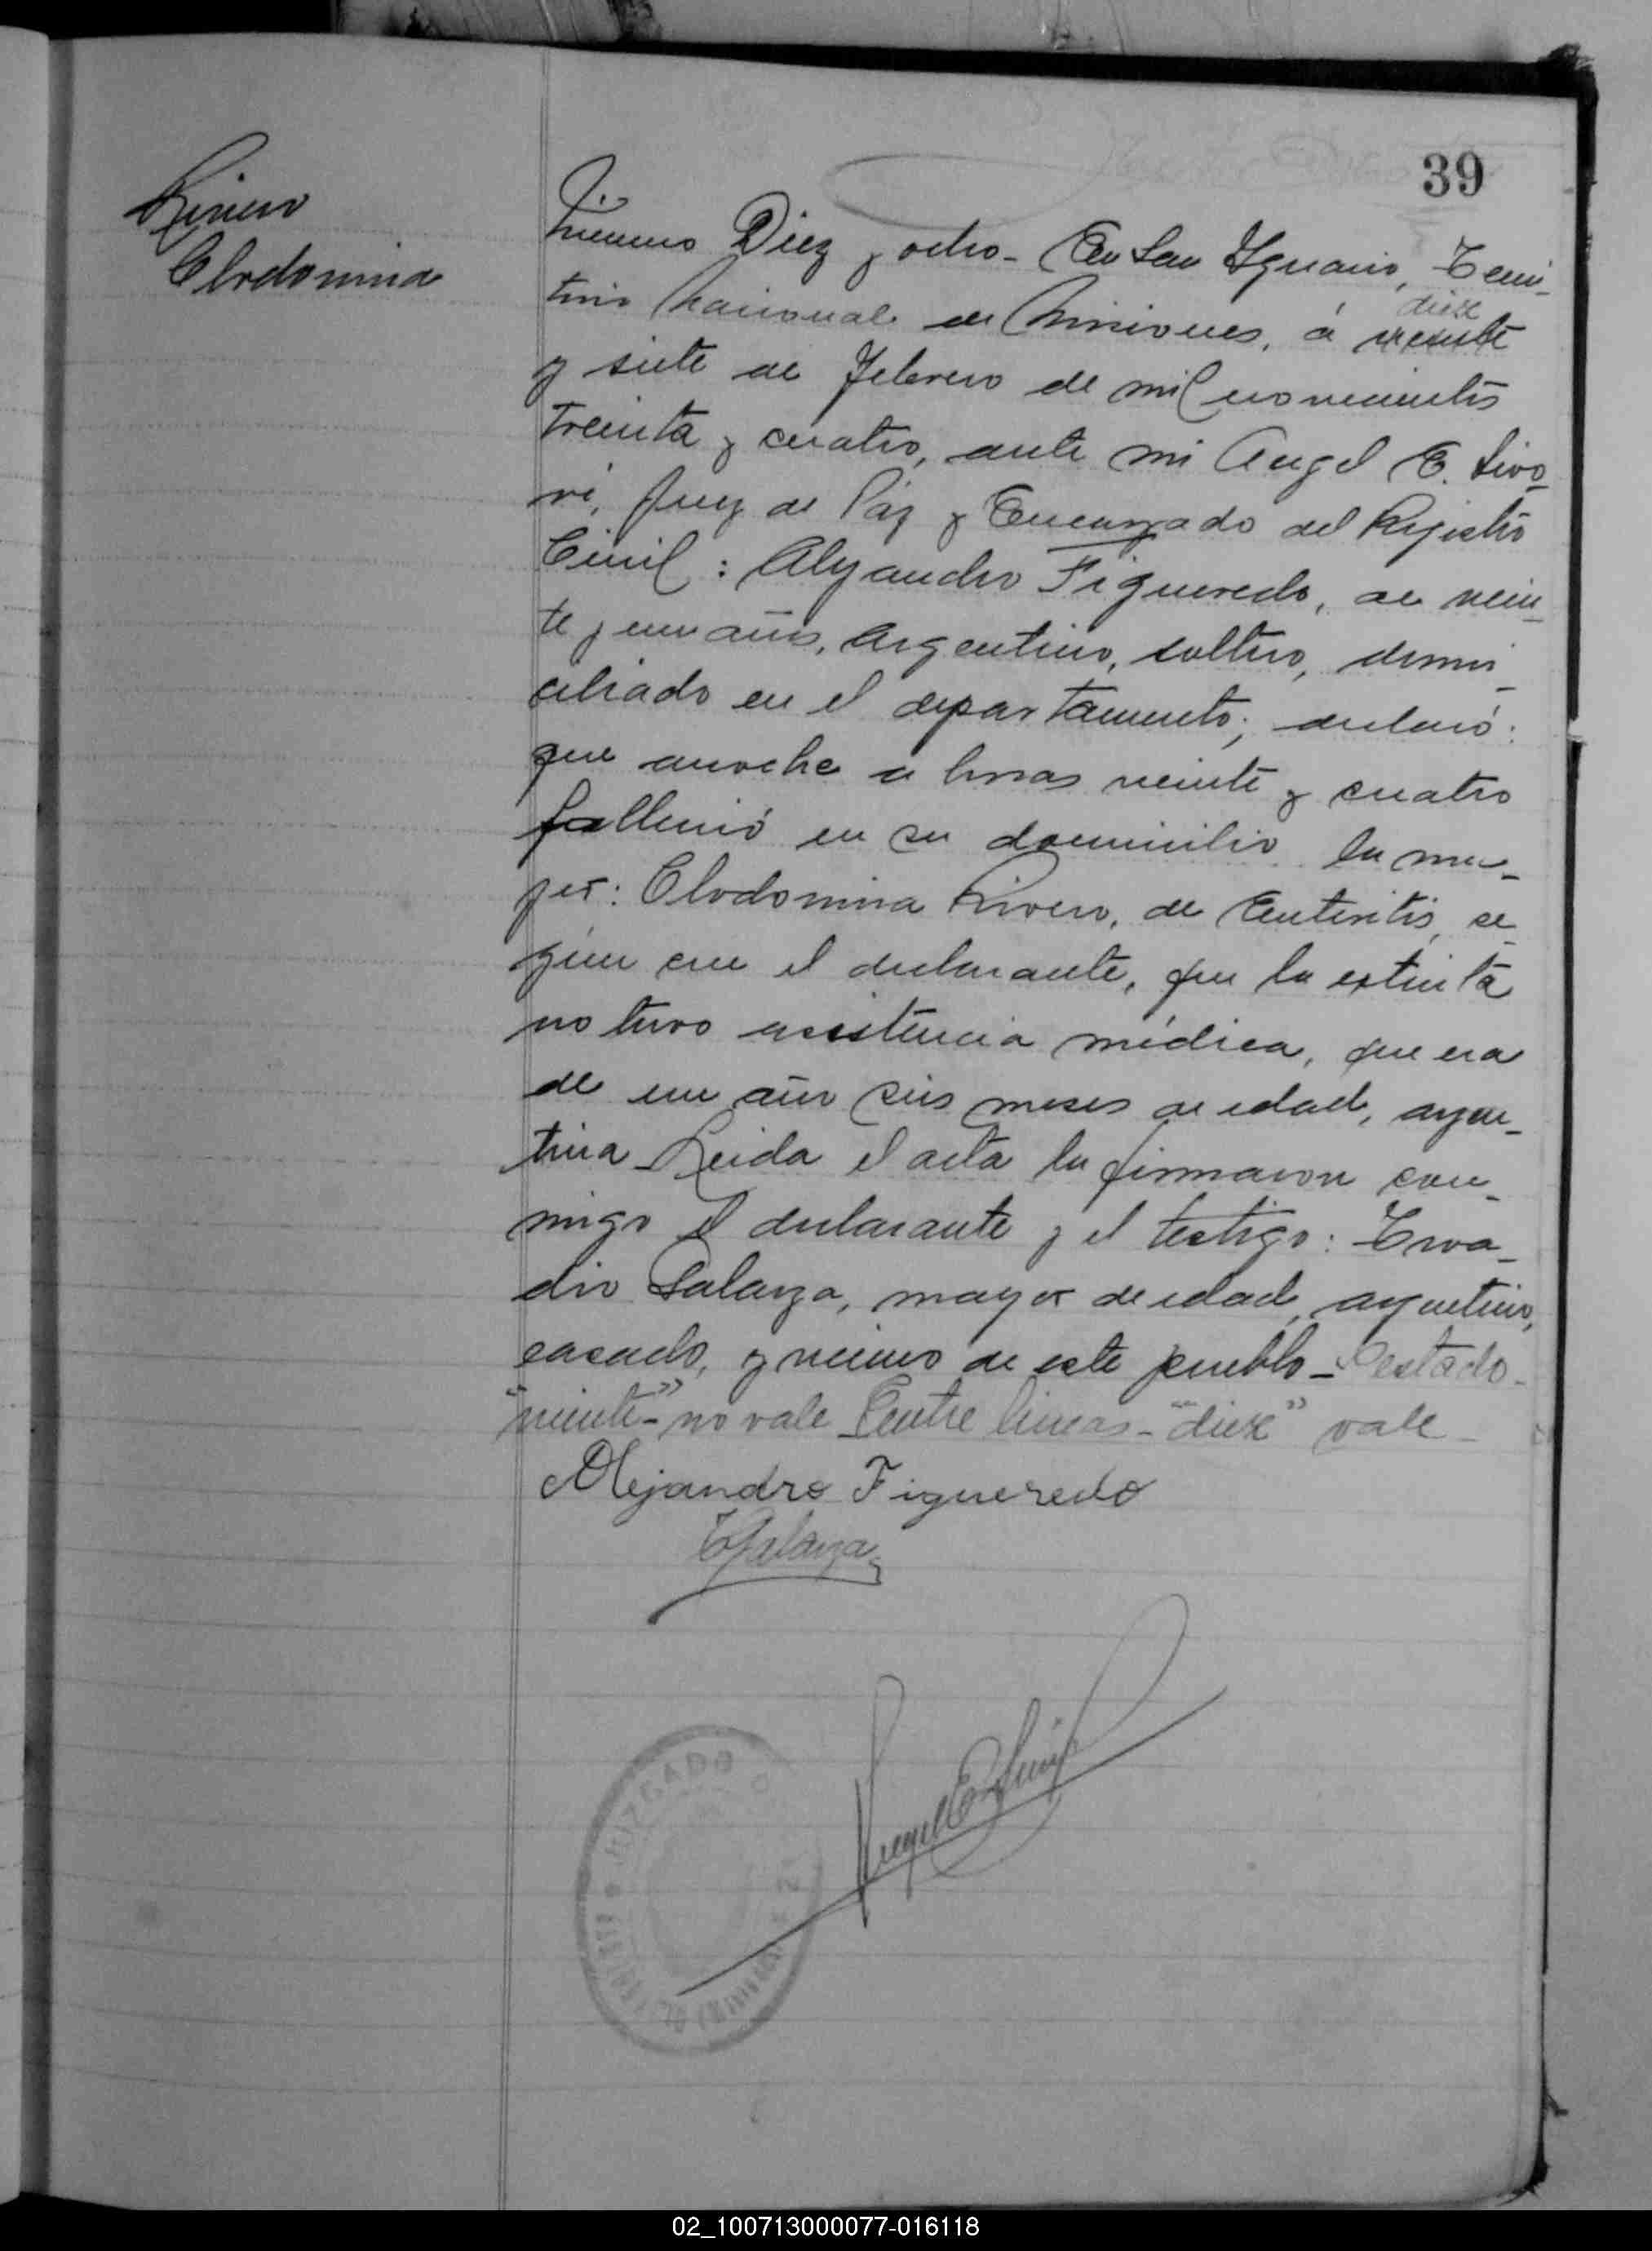 39
Rivero
Clodomira
Número Diez y ocho - En San Ygnacio, Terri-
torio Nacional de Misiones, á veinte
diez
y siete de Febrero de mil novecientos
treinta y cuatro, ante mi Angel E. Sivo-
ri, Juez de Páz y Encargado del Registro
Civil: Alejandro Figueredo, de vein-
te y un años, argentino, soltero, domi-
ciliado en el departamento; declaró:
que anoche a horas veinte y cuatro
falleció en su domicilio la mu-
jer: Clodomira Rivero, de Enteritis, se-
gún cree el declarante, que la extinta
no tuvo asistencia médica, que era
de un año seis meses de edad, argen-
tina - Leida el acta la firmaron con-
migo el declarante y el testigo:
dio Galarza, mayor de edad, argentino,
casado, y vecino de este pueblo - Testado -
"veinte" - no vale - Entre lineas - "diez" vale -
Alejandro Figueredo
Galarza
Angel E. Sivori
JUZGADO
02_100713000077-016118